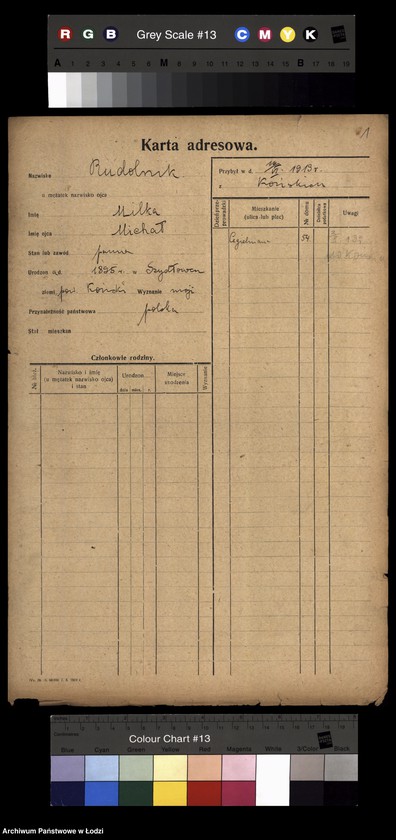 R G B Grey Scale #13 C M Y K
A 1 2 3 4 5 6 M 8 9 10 11 12 13 14 15 B 17 18 19
1
Karta adresowa.
Nazwisko Rudolnik
u mężatek nazwisko ojca
Imię Milka
Imię ojca Michał
Stan lub zawód panna
Urodzon d. 1895 r. w Szydłowcu
ziemi pow. Konecki Wyznanie mojż
Przynależność państwowa polska
Stał mieszkan
Przybył w d. 1913 r.
z Końskich
Data przeprowadzki
Mieszkanie (ulica lub plac)
№ domu
Uwagi
Cegielniana 54
Członkowie rodziny.
Nazwisko i imię (u mężatek nazwisko ojca) i stan
Urodzon
dnia mies. r.
Miejsce urodzenia
Wyznanie
Inches
Centimetres
Colour Chart #13
Blue Cyan Green Yellow Red Magenta White 3/Color Black
Archiwum Państwowe w Łodzi